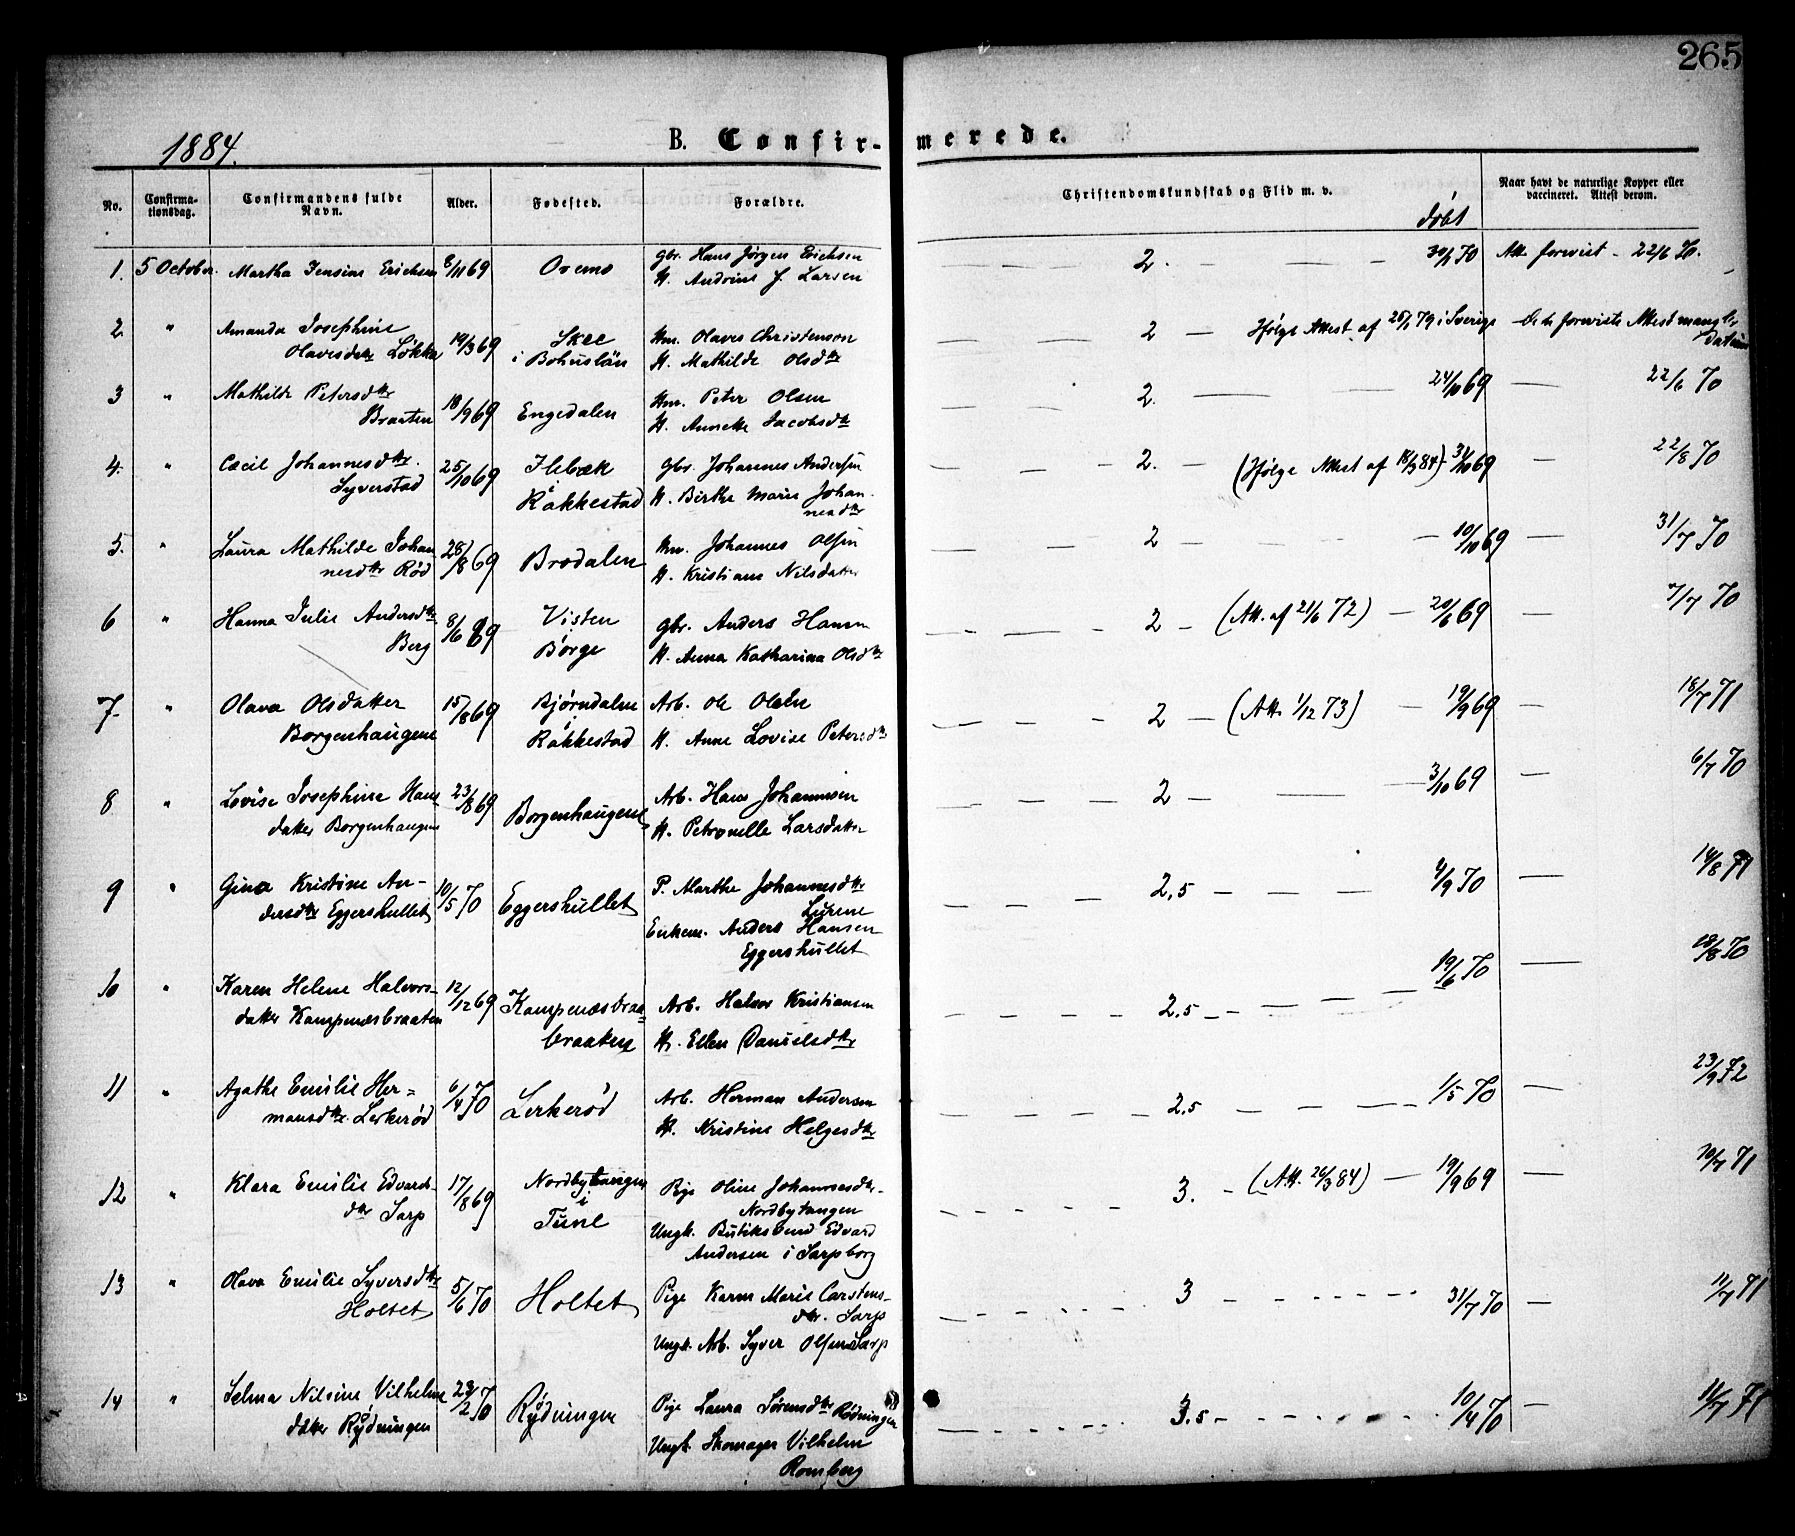 265
1884.
B. Confirmerede.
No.
Confirmationsdag.
Confirmandens fulde Navn.
Alder.
Fødested.
Forældre.
Christendomskundskab og Flid m. v.
døbt
Naar havt de naturlige Kopper eller vaccineret. Attest derom.
1. 5 October. Martha Jensine Erichsen 8/11 69 Gbr. Hans Jørgen Erichsen
H. Andrine J. Larsen
2. 30/1 70 Att. forevist - 22/6 70.
2 " Amanda Josephine
Olavesdtr Løkke 19/3 69 Skee
i Bohuslän Hm. Olaves Christenson
H. Mathilde Olsdtr
2 Ifølge Attest af 25/1 79 i Sverige Den foreviste Attest mangler
Datum
3 " Mathilde Petersdtr
Braaten 18/9 69 Engedalen Hm. Peter Olsen
H. Annette Jacobsdtr
2. 24/10 69 22/6 70
4. " Cæcil Johannesdtr.
Syverstad 25/10 69
i
Rakkestad Gbr. Johannes Andersen
H. Birthe Marie Johan-
nesdtr
2. (Ifølge Attest af 18/3 84) - 31/10 69 22/8 70
5. " Laura Mathilde Johan
nesdtr Rød 28/8 69 Brodalen Hm. Johannes Olsen
H. Kristiane Nilsdatter
2 10/10 69 31/7 70
6 " Hanna Julie Andersdtr
Berg 8/6 69 Visten
Borge Gbr. Anders Hansen
H. Anna Katharina Olsdtr
2 - (Att. af 21/6 72) - 20/6 69 7/7 70
7. " Olava Olsdatter
Borgenhaugene 15/8 69 Bjørndalen
Rakkestad Arb. Ole Olsen
H. Anne Lovise Petersdtr
2 - (Att. 1/12 73) - 19/9 69 18/7 71
8 " Lovise Josephine Hans
datter Borgenhaugen 23/8 69 Borgenhaugene Arb. Hans Johannesen
H. Petronelle Larsdatter
2 - 3/10 69 6/7 70
9 " Gina Kristine An-
dersdtr Eggershullet 10/5 70 Eggershullet P. Marthe Johannesdtr
Lurene
Enkem. Anders Hansen
Eggershullet
2,5 4/9 70 14/8 71
10 " Karen Helene Halvors-
datter Kampenæsbraaten 12/12 69 Kampenæsbraa=
braatene Arb. Halvor Kristiansen
H. Ellen Danielsdtr
2,5 19/6 70 18/8 70
11 " Agathe Emilie Her=
mansdtr. Lerkerød 6/4 70 Lerkerød Arb. Herman Andersen
H. Kristine Helgesdtr
2,5 1/5 70 23/9 72
12 " Klara Emilie Edvards-
dtr Sarp 17/8 69 Nordbytangen
i
Tune Pige Oline Johannesdtr.
Nordbytangen
Ungk. Butiksbud Edvard
Andersen i Sarpsborg
3. - (Att. 26/3 84) - 19/9 69 20/7 71
13 " Olava Emilie Syversdtr
Holtet 5/6 70 Holtet Pige Karen Marie Carstens-
dtr. Sarp
Ungk. Arb. Syver Olsen Sarp
3 31/7 70 11/7 71
14 " Selma Nilsine Vilhelms
datter Rydningen 23/2 70 Rydningen Pige Laura Sørensdtr Rødningen
Ungk. Skomager Vilhelm
Romberg
3.5 10/4 70 11/7 71